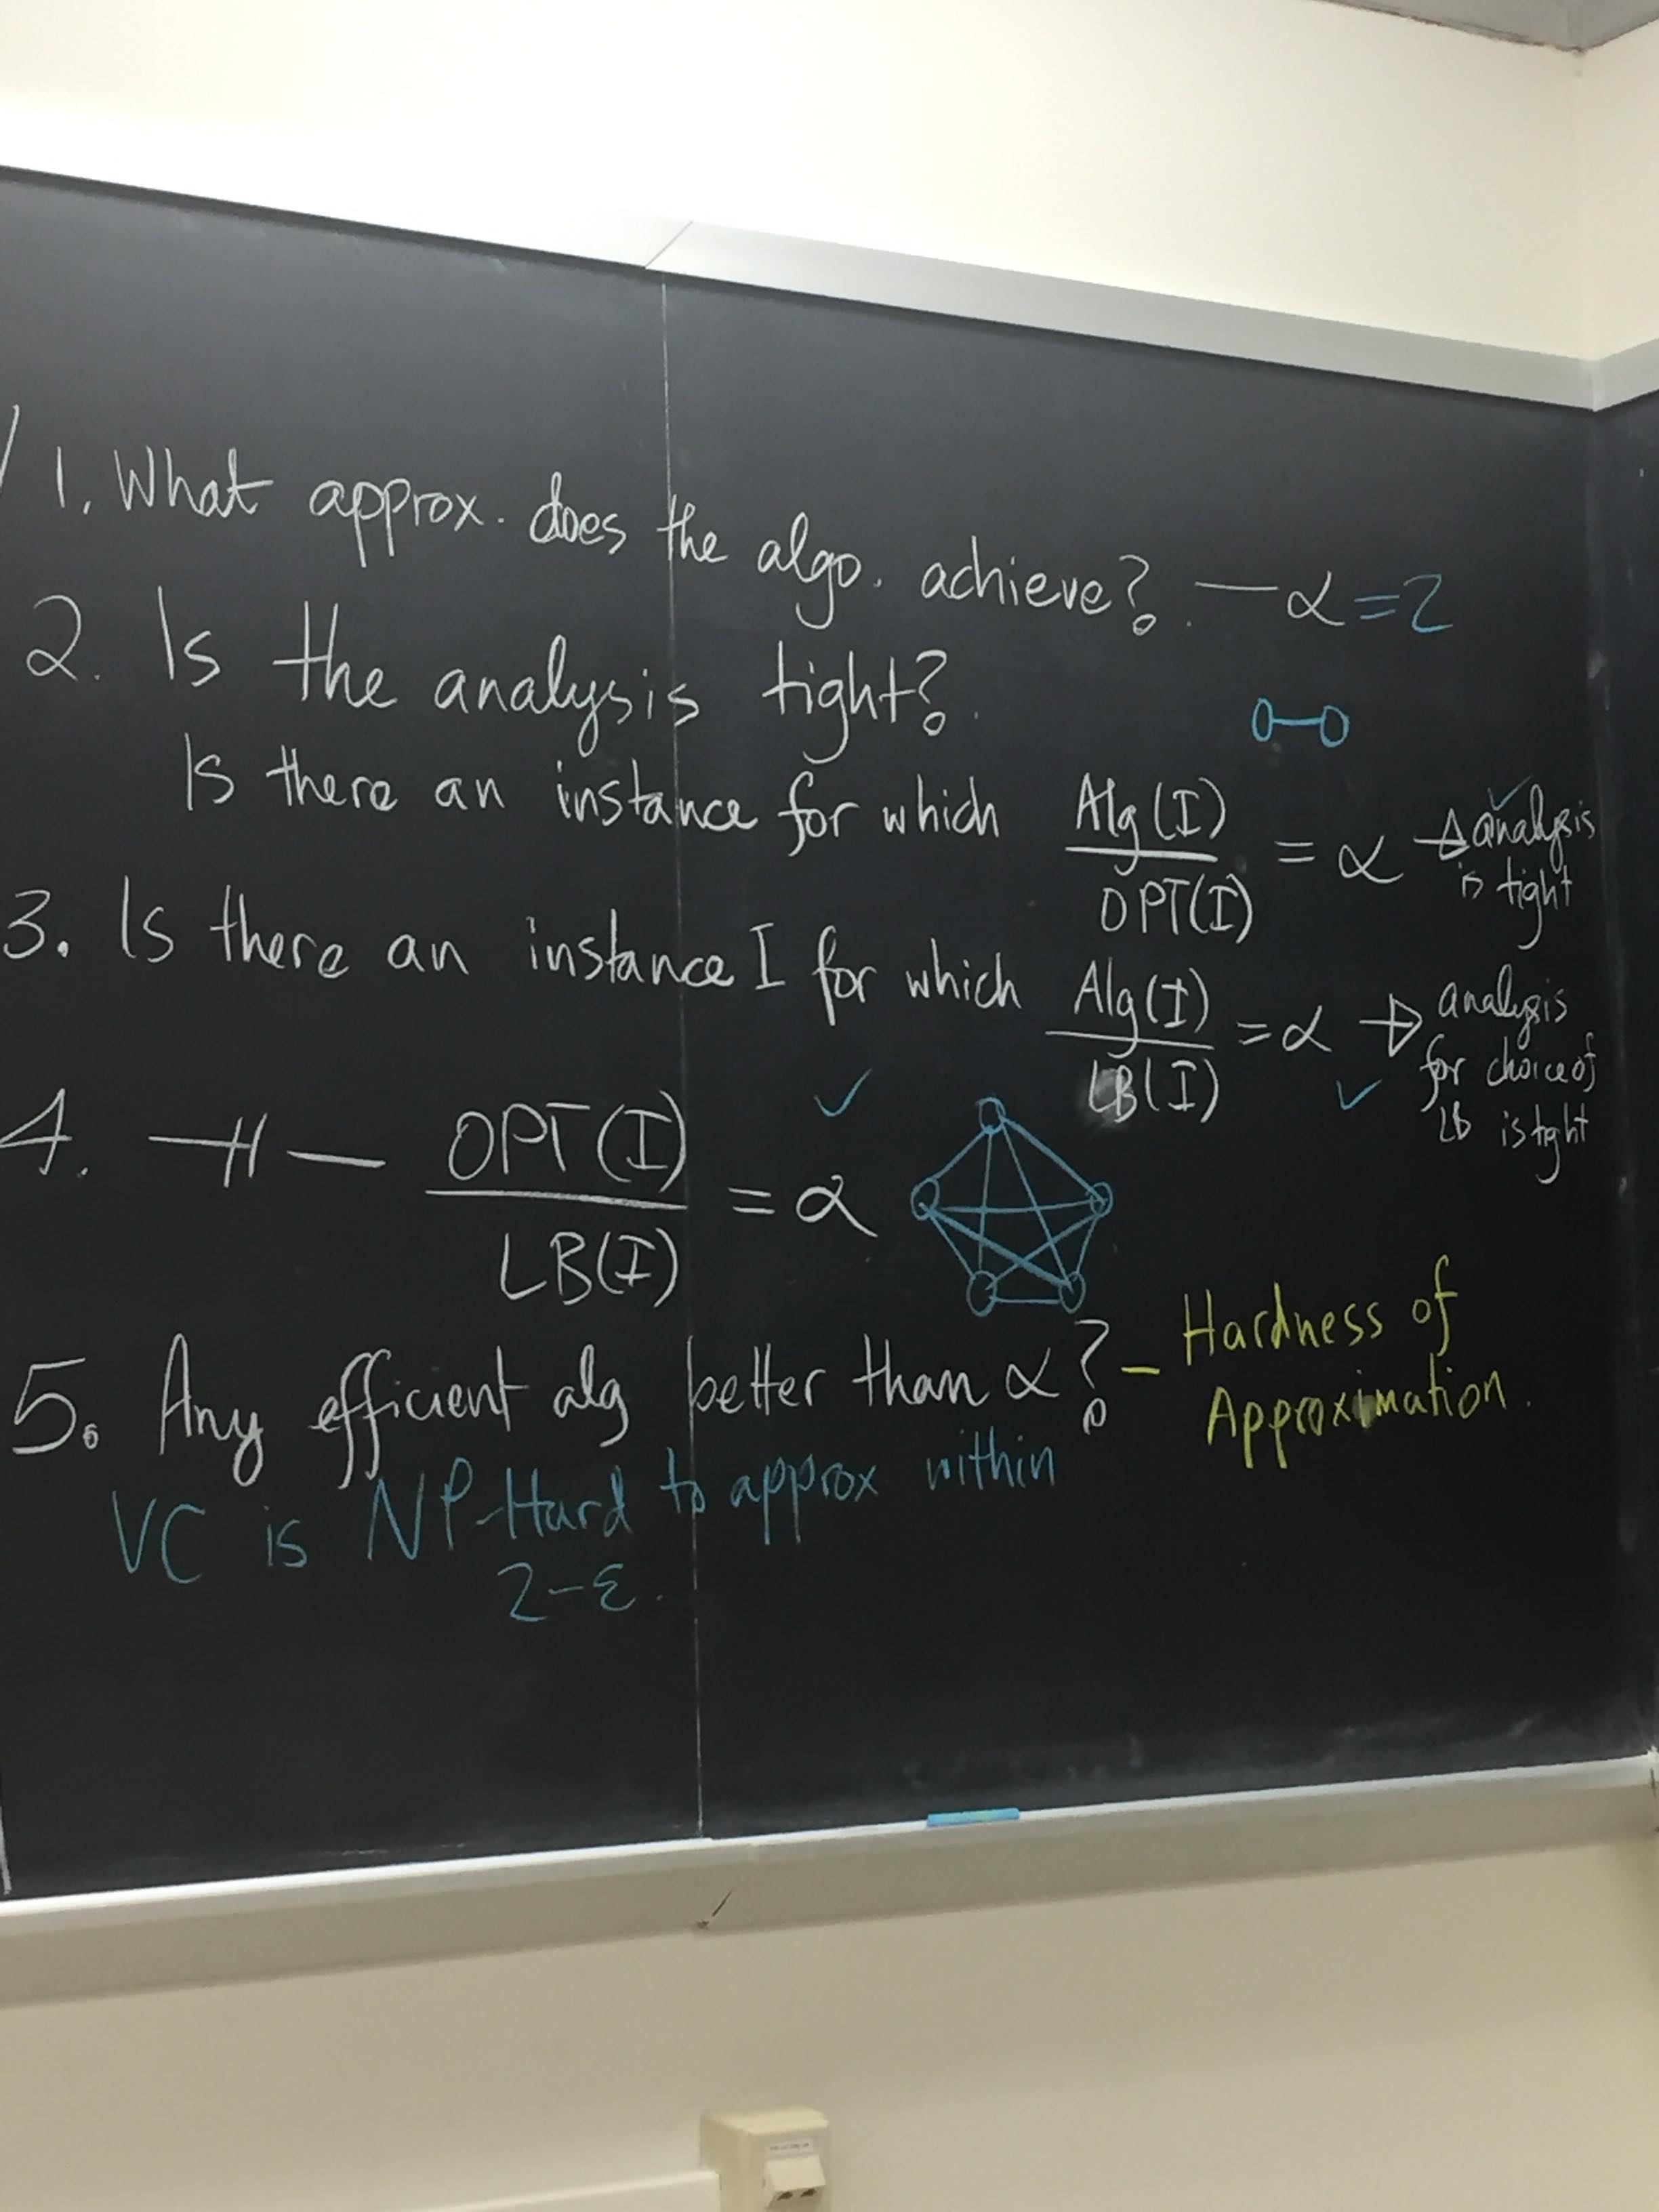 1. What approx. does the algo. achieve? — α = 2
2. Is the analysis tight?
Is there an instance for which Alg(I) / OPT(I) = α → analysis is tight
3. Is there an instance I for which Alg(I) / LB(I) = α → analysis for choice of LB is tight
4. —〃— OPT(I) / LB(I) = α ✓
5. Any efficient alg better than α? – Hardness of Approximation.
VC is NP-Hard to approx within
2-ε.